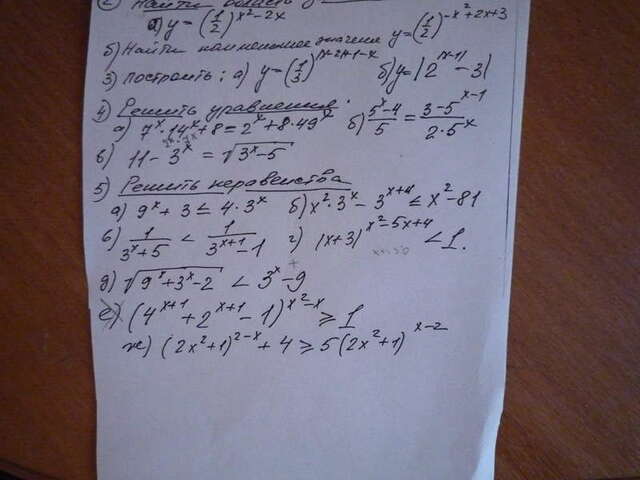 ② Найти область
а) y = (1/2)^(x²-2x)
б) Найти наименьшее значение y = (1/2)^(-x²+2x+3)
3) построить: а) y = (1/3)^(|x-2|+1-x) б) y = |2^|x-1| - 3|
4) Решить уравнения.
а) 7^x · 14^x + 8 = 2^x + 8·49^x б) (5^x - 4)/5 = (3 - 5^(x-1))/(2·5^x)
в) 11 - 3^x = √(3^x - 5)
5) Решить неравенства
а) 9^x + 3 ≤ 4·3^x б) x²·3^x - 3^(x+4) ≤ x² - 81
в) 1/(3^x + 5) < 1/(3^(x+1) - 1) г) (x+3)^(x²-5x+4) < 1.
д) √(9^x + 3^x - 2) < 3^x - 9
е) (4^(x+1) + 2^(x+1) - 1)^(x²-x) ≥ 1
ж) (2x²+1)^(2-x) + 4 ≥ 5(2x²+1)^(x-2)